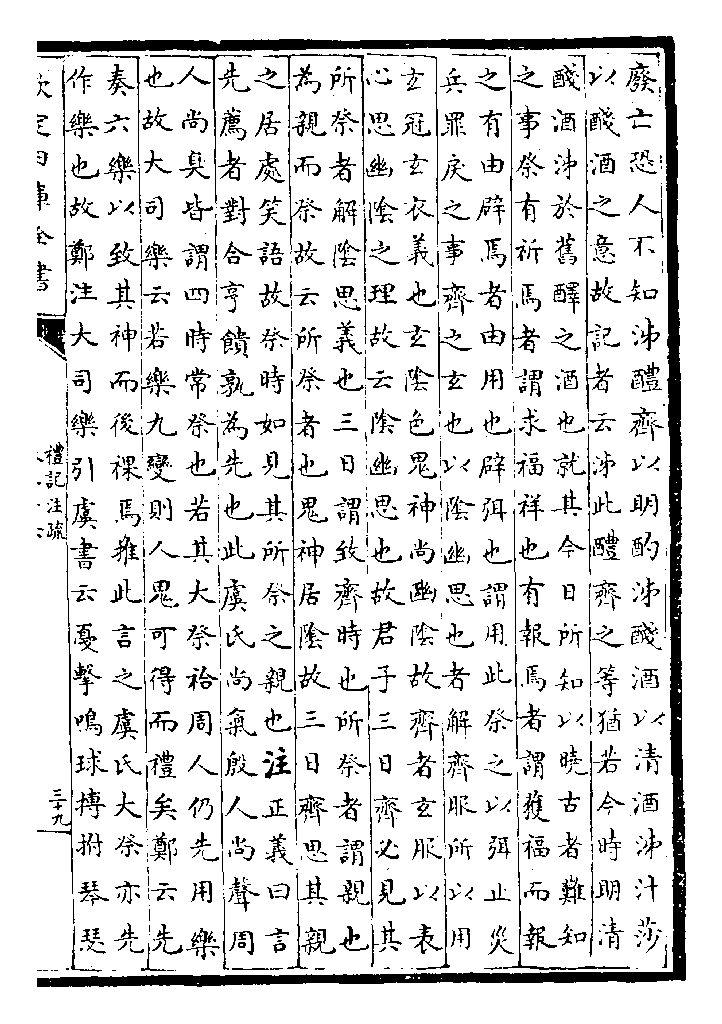 廢亡恐人不知泲醴齊以明酌泲醆酒以清酒泲汁莎
以醆酒之意故記者云泲此醴齊之等猶若今時明清
醆酒泲於舊醳之酒也就其今日所知以曉古者難知
之事祭有祈焉者謂求福祥也有報焉者謂獲福而報
之有由辟焉者由用也辟弭也謂用此祭之以弭止災
兵罪戾之事齊之玄也以陰幽思也者解齊服所以用
玄冠玄衣義也玄陰色鬼神尚幽陰故齊者玄服以表
心思幽陰之理故云陰幽思也故君子三日齊必見其
所祭者解陰思義也三日謂致齊時也所祭者謂親也
為親而祭故云所祭者也鬼神居陰故三日齊思其親
之居處笑語故祭時如見其所祭之親也注正義曰言
先薦者對合亨饋孰為先也此虞氏尚氣殷人尚聲周
人尚臭皆謂四時常祭也若其大祭祫周人仍先用樂
也故大司樂云若樂九變則人鬼可得而禮矣鄭云先
奏六樂以致其神而後祼焉推此言之虞氏大祭亦先
作樂也故鄭注大司樂引虞書云戛擊鳴球搏拊琴瑟
欽定四庫全書
禮記注疏
三十九